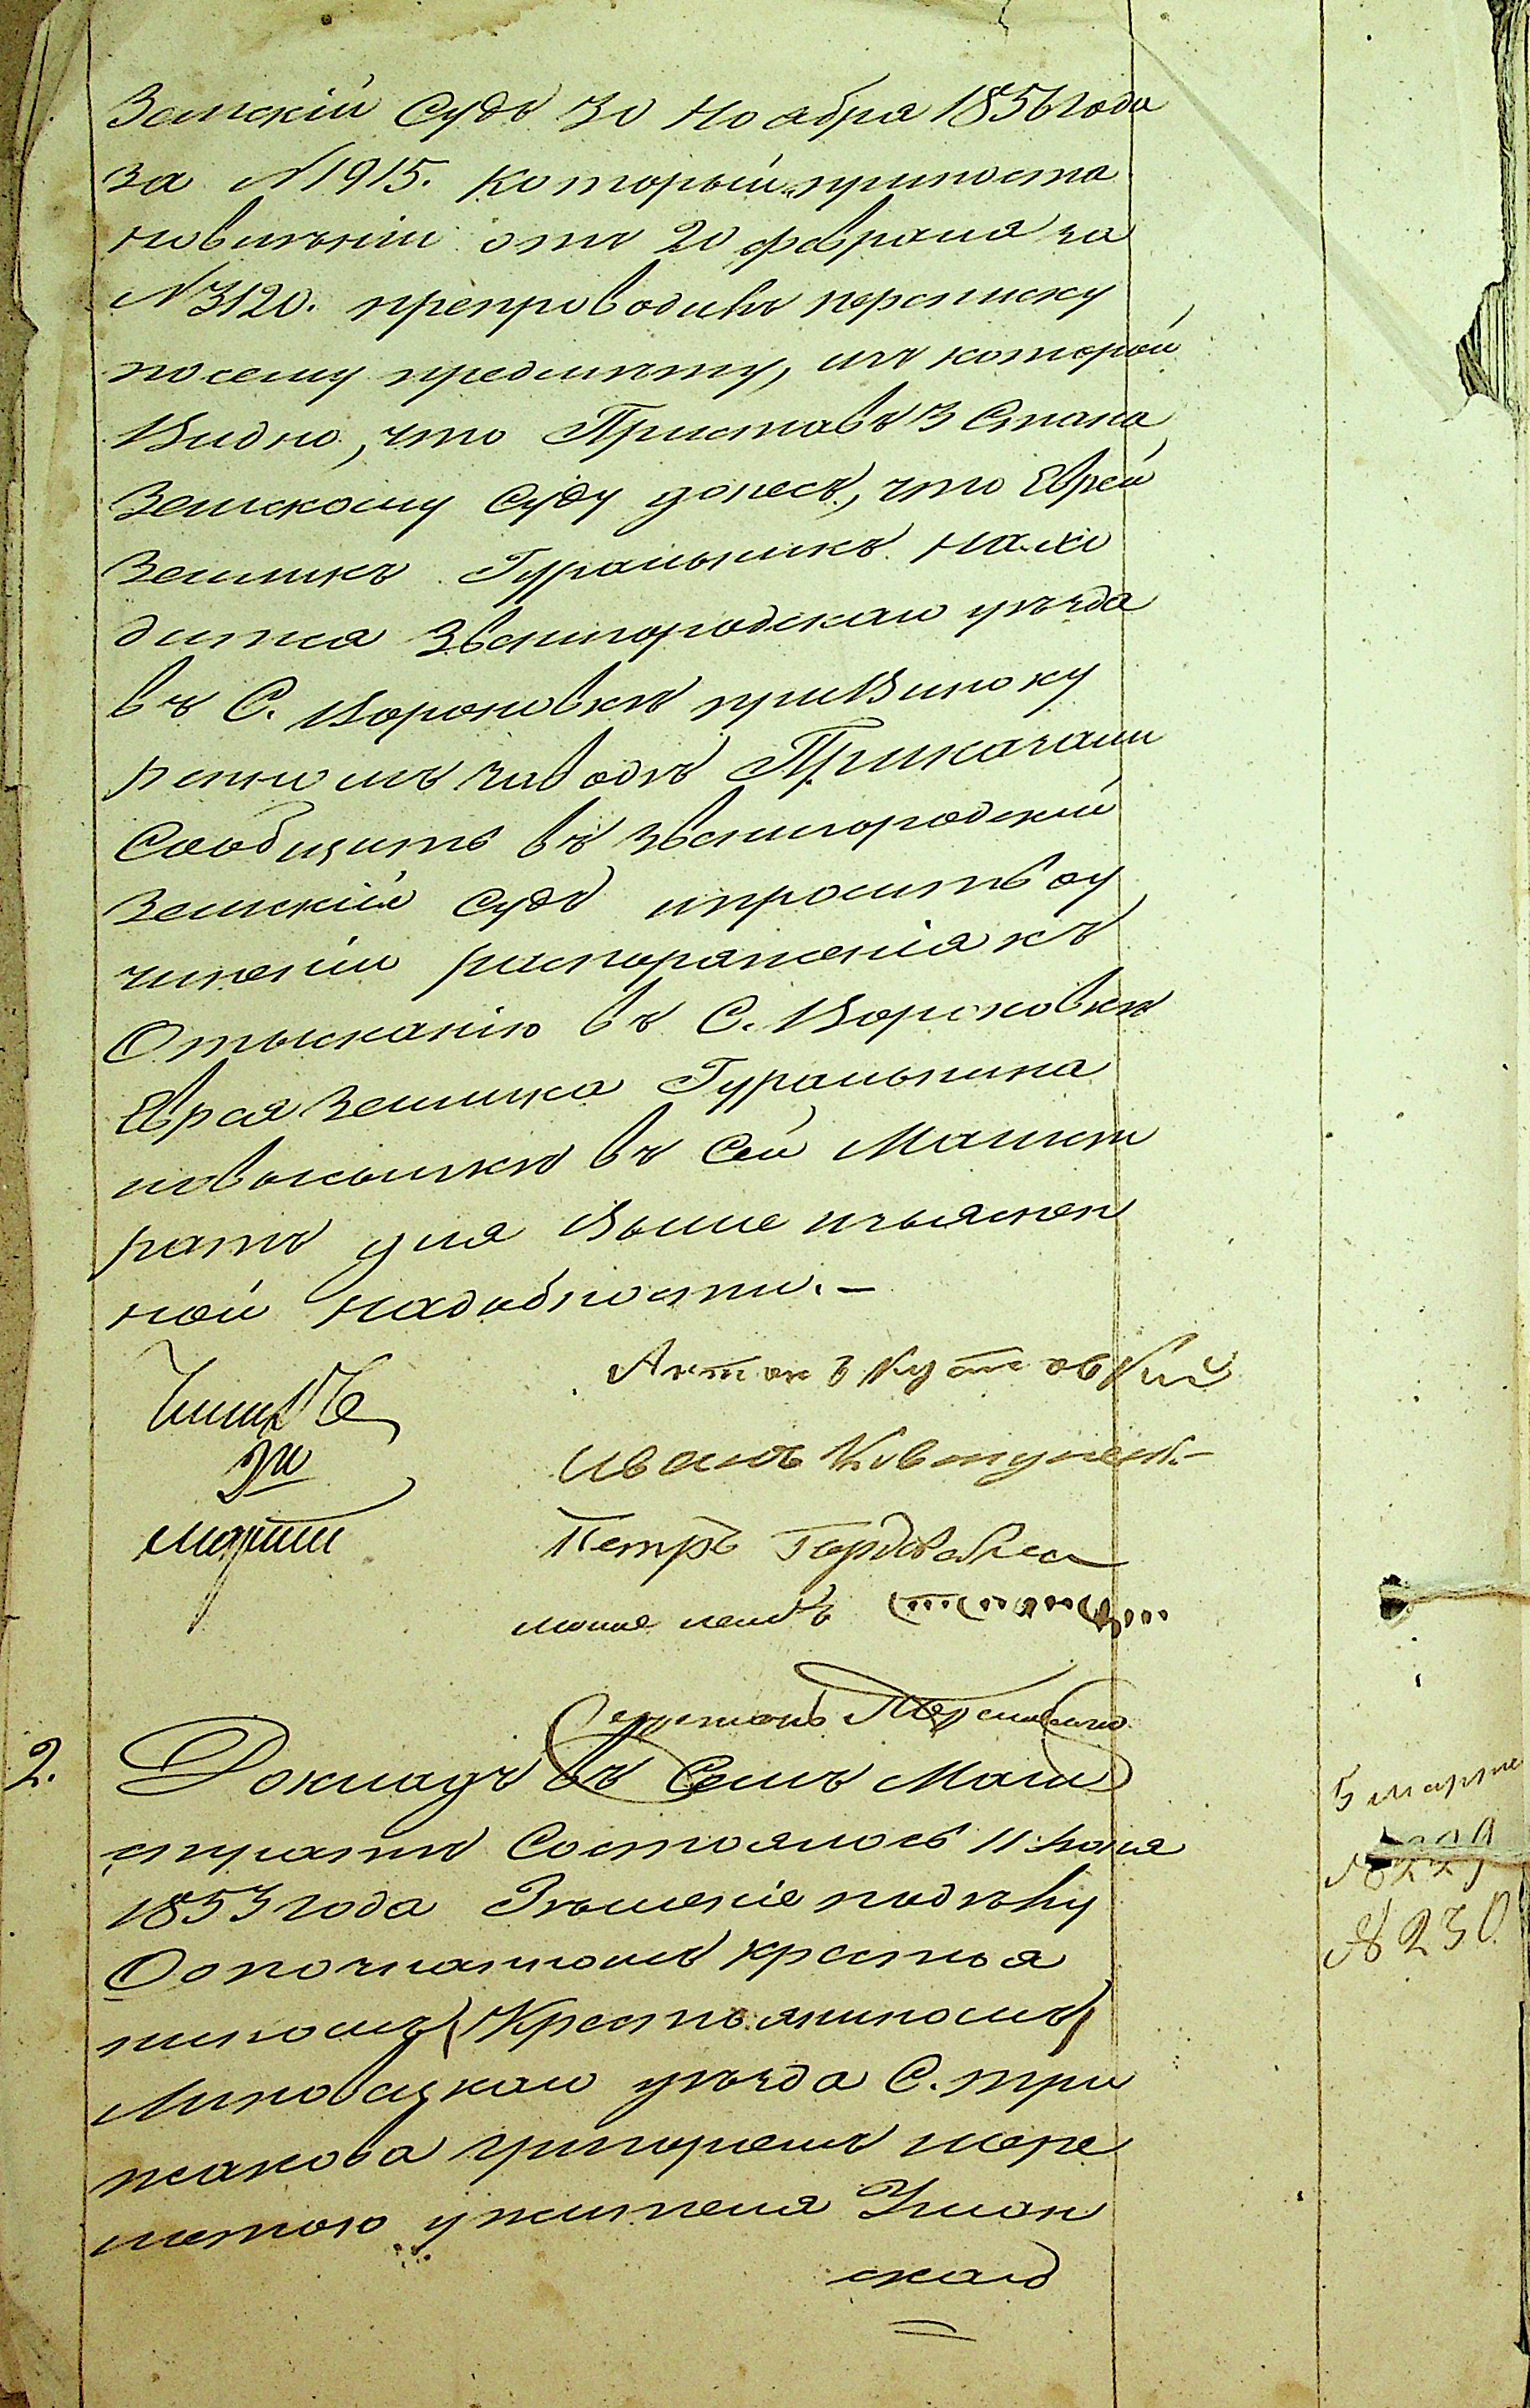 Земскій Судъ 30 Ноября 1856 года
за №1915. который припоста
новленіи отъ 20 февраля за
№3120. препроводивъ переписку
по сему предмѣту, изъ которой
Видно, что Приставъ 3 Стана
Земскому Суду донесъ, что Еврей
Зеликъ Гуральникъ нахо
дится Звенигородскаго уѣзда
въ С. Вороновкѣ при Виноку
ренномъ заводѣ Приказали
Сообщить въ Звенигородскій
Земскій Судъ и просить о у
чиненіи распоряженія къ
Отысканію въ С. Вороновкѣ
Еврея Зелика Гуральника
и высылкѣ въ Сей Магист
ратъ для Выше изъяснен
ной надобности.-
Антонъ Кутовскій
Иванъ
Петръ
Секретарь
2. Докладъ въ Семъ Маги
стратѣ Состоялось 11 Іюня
1853 года Рѣшеніе по дѣлу
О опознанномъ крестья
ниномъ (Крестьяниномъ)
Липовецкаго уѣзда С. при
жакова Григоремъ шере
метою у жителя Уман
скаго
5 марта
№229
№230